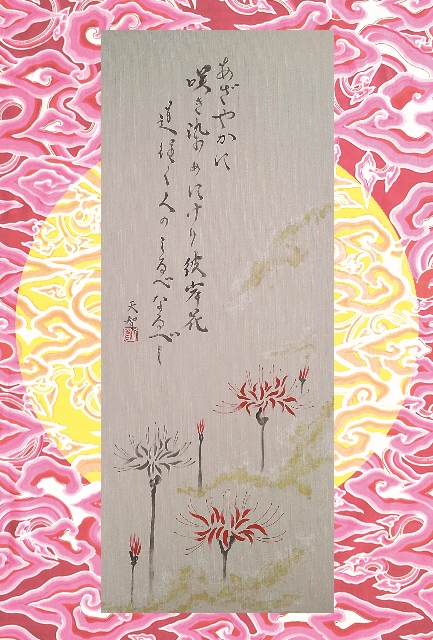 あざやかに
咲き染めにけり彼岸花
道往く人のしるべなるべし
天智